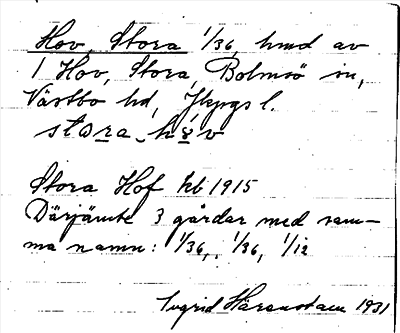 Hov, Stora 1/36, hmd av
1 Hov, Stora, Bolmsö sn,
Västbo hd, Jkpgs l.
stora hov
Stora Hof kb 1915
Därjämte 3 gårdar med sam-
ma namn: 1/36, 1/36, 1/12
Ingrid Härenstam 1931